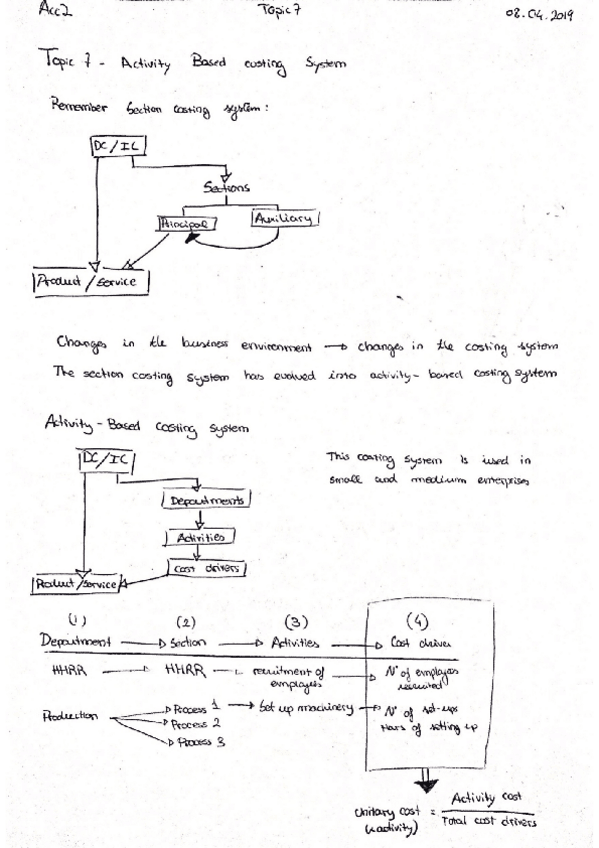 Acc2 Topic 7 02.04.2019
Topic 7 - Activity Based costing System
Remember Section costing system:
DC/IC
Sections
Principal Auxiliary
Product / Service
Changes in the business environment → changes in the costing system
The section costing system has evolved into activity-based costing system
Activity-Based costing system
DC/IC
This costing system is used in
small and medium enterprises
Departments
Activities
Cost drivers
Product/Service
(1) (2) (3) (4)
Department → Section → Activities → Cost driver
HHRR → HHRR → recruitment of
employees
Nº of employees
recruited
Production → Process 1 → Set up machinery → Nº of set-ups
→ Process 2 Hours of setting up
→ Process 3
Unitary cost = Activity cost
(activity) Total cost drivers